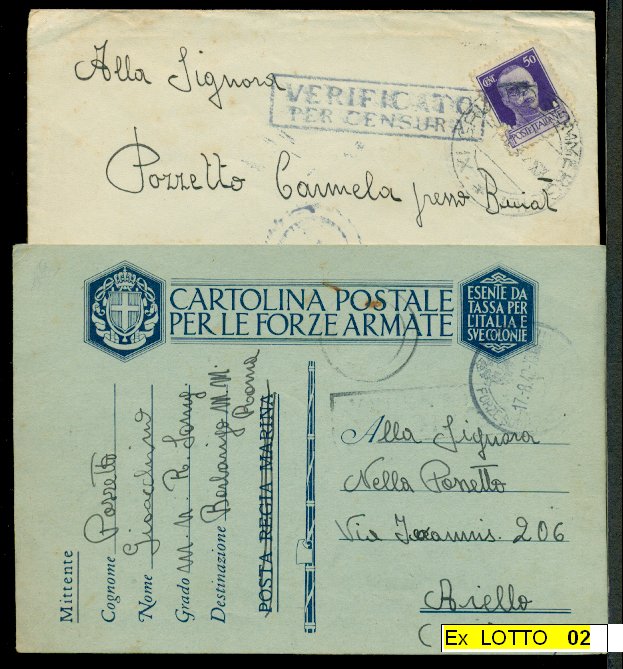 Alla Signora
VERIFICATO
PER CENSURA
CENT. 50
POSTE ITALIANE
Pozzetto Carmela presso
CARTOLINA POSTALE
PER LE FORZE ARMATE
ESENTE DA
TASSA PER
L'ITALIA E
SVE COLONIE
Mittente
Cognome Pozzetto
Nome Gioacchino
Grado
Destinazione M.M.
Roma
POSTA REGIA MARINA
Alla Signora
Nella Pozzetto
Via 206
Aiello
Ex LOTTO 02